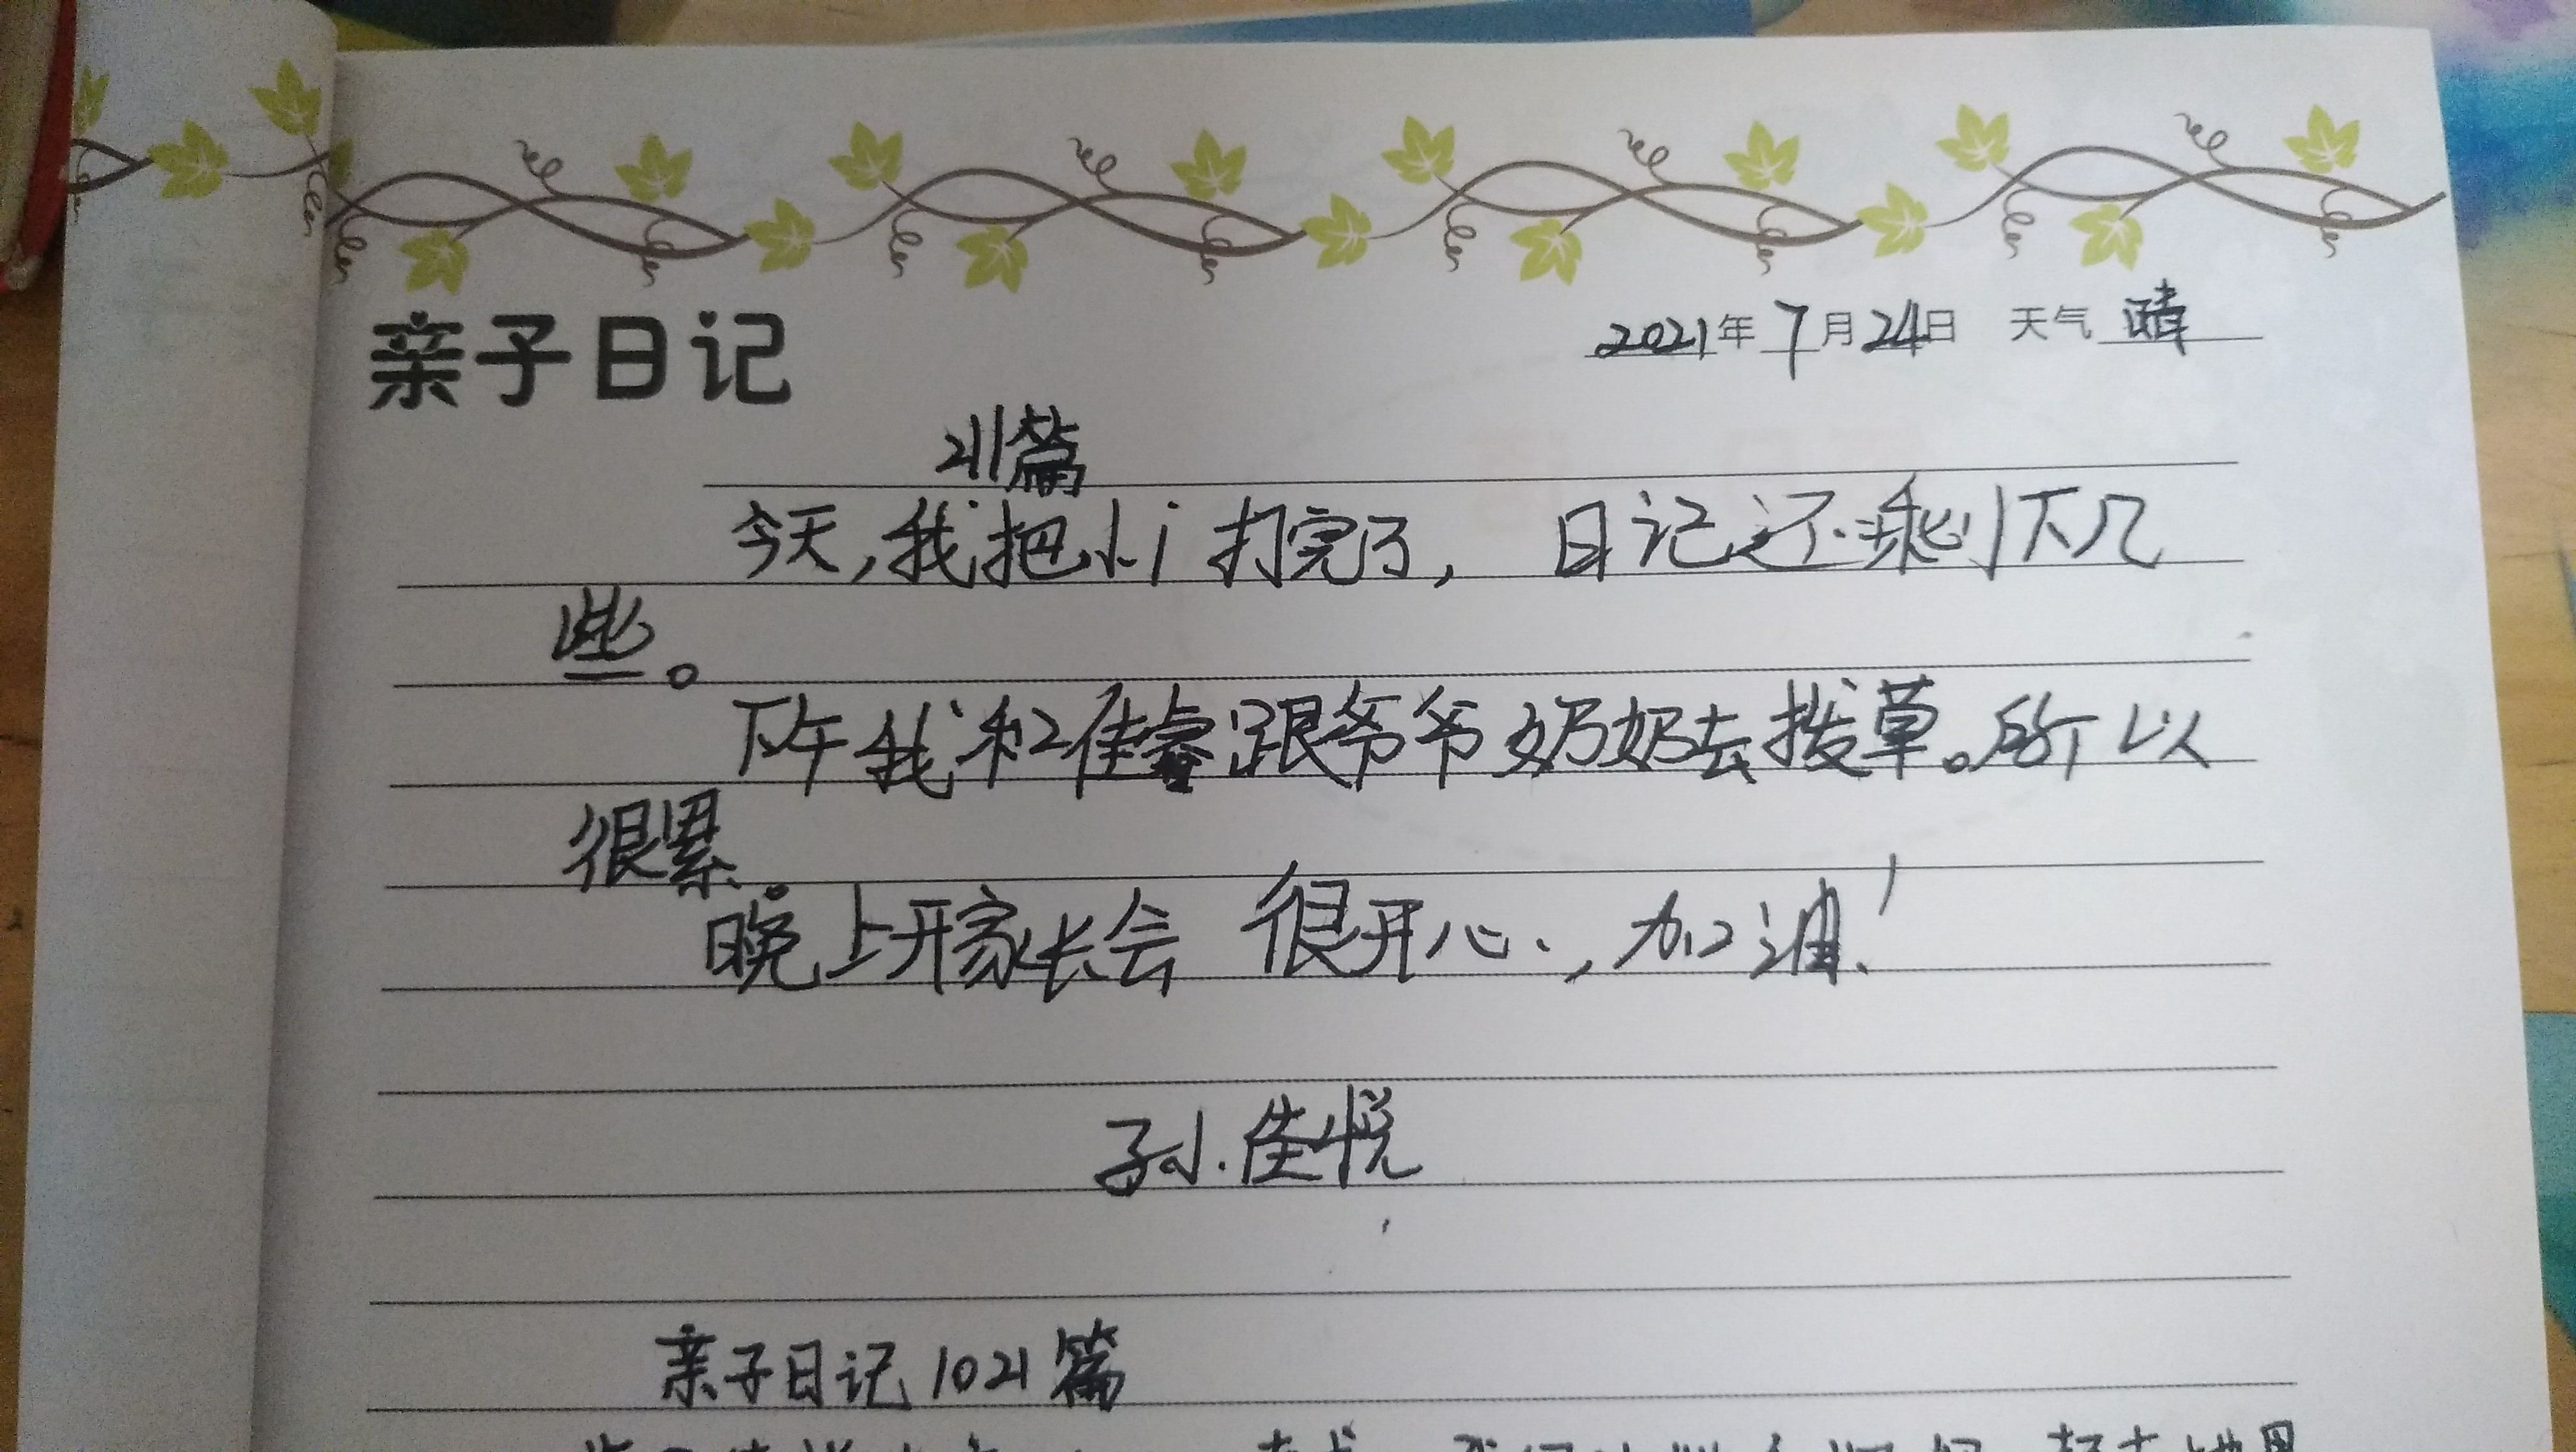 亲子日记
2021年7月24日 天气 晴
211篇
今天,我把小j打完了, 日记还剩下几
些。
下午我和佳睿跟爷爷奶奶去拨草。所以
很累。
晚上开家长会 很开心.,加油!
孙佳悦
亲子日记1021篇